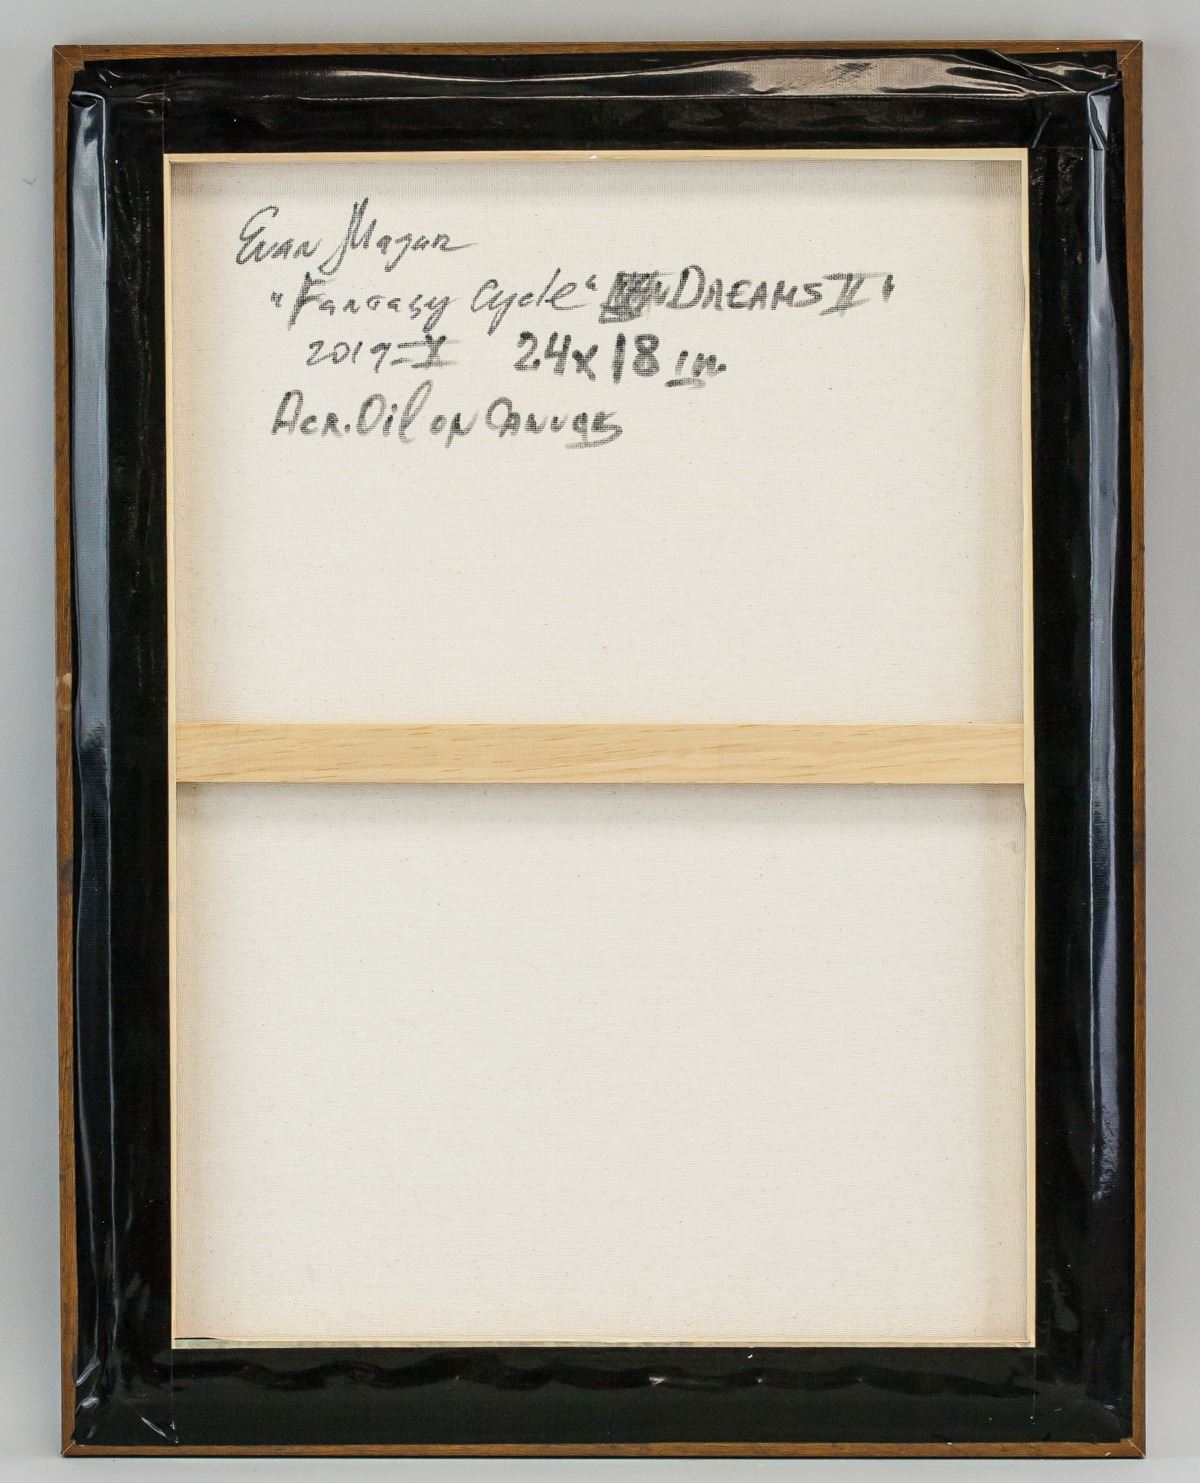 Evan Mazur
"Fantasy Cycle" DREAMS II"
2017-X 24x18 in.
Acr. Oil on Canvas